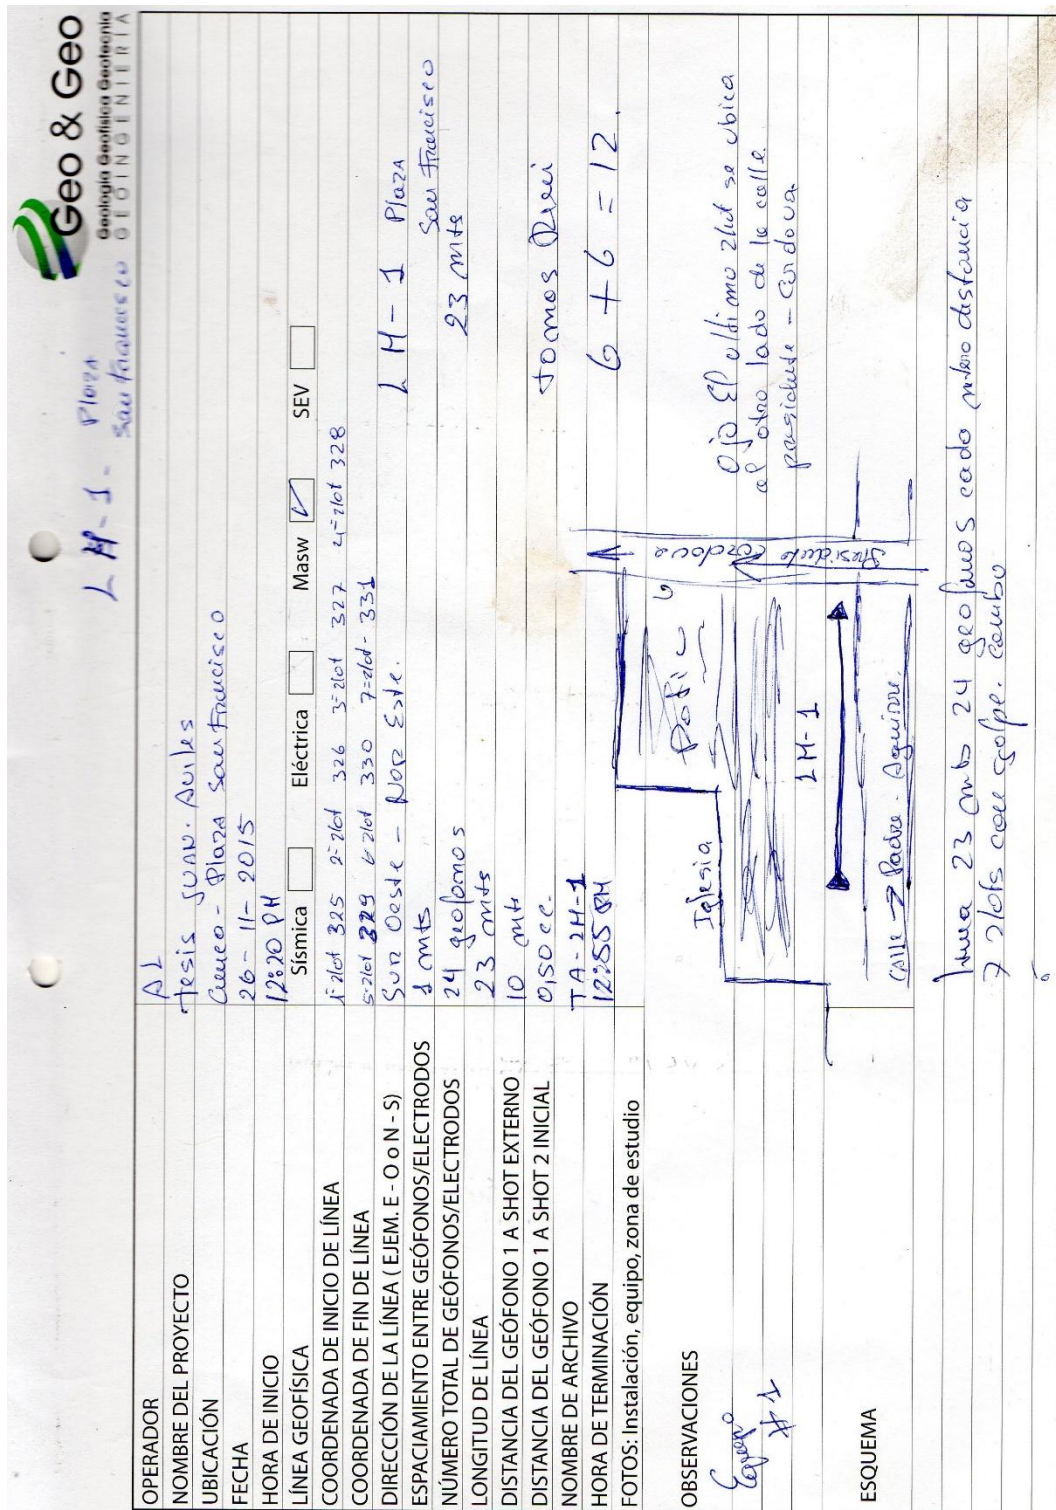 Geo & Geo
Geología Geofísica Geotecnia
GEOINGENIERIA
LM-1 - Plaza
San Francisco
OPERADOR AL
NOMBRE DEL PROYECTO Tesis Juan. Aviles
UBICACIÓN Cuenca - Plaza San Francisco
FECHA 26-11-2015
HORA DE INICIO 12:20 PM
LÍNEA GEOFÍSICA Sísmica Eléctrica Masw ✓ SEV
COORDENADA DE INICIO DE LÍNEA 1=zlot 325 2=zlot 326 3=zlot 327 4=zlot 328
COORDENADA DE FIN DE LÍNEA 5=zlot 329 6=zlot 330 7=zlot - 331
DIRECCIÓN DE LA LÍNEA ( EJEM. E - O o N - S) Sur Oeste - Nor Este.
LM-1 Plaza
San Francisco
ESPACIAMIENTO ENTRE GEÓFONOS/ELECTRODOS 1 mts
NÚMERO TOTAL DE GEÓFONOS/ELECTRODOS 24 geofonos 23 mts
LONGITUD DE LÍNEA 23 mts
DISTANCIA DEL GEÓFONO 1 A SHOT EXTERNO 10 mts
DISTANCIA DEL GEÓFONO 1 A SHOT 2 INICIAL 0,50 cc. tomos
NOMBRE DE ARCHIVO TA-LM-1
HORA DE TERMINACIÓN 12:55 PM 6+6=12.
FOTOS: Instalación, equipo, zona de estudio
OBSERVACIONES
Equipo
#1
Ojo El ultimo zhot se ubica
al otro lado de la calle
presidente - Cordova.
ESQUEMA
Iglesia
Presidente Cordova
LM-1
Calle → Padre. Aguirre.
Linea 23 mts 24 geofonos cada metro distancia
7 zlots con golpe. Combo